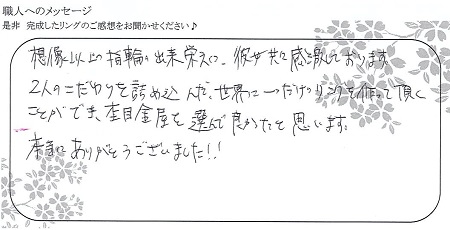 職人へのメッセージ
是非 完成したリングのご感想をお聞かせください♪
想像以上の指輪の出来栄えに、彼女共々感激しております
2人のこだわりを詰め込んだ、世界に一つだけのリングを作って頂く
ことができ、杢目金屋を選んで良かったと思います。
本当にありがとうございました!!